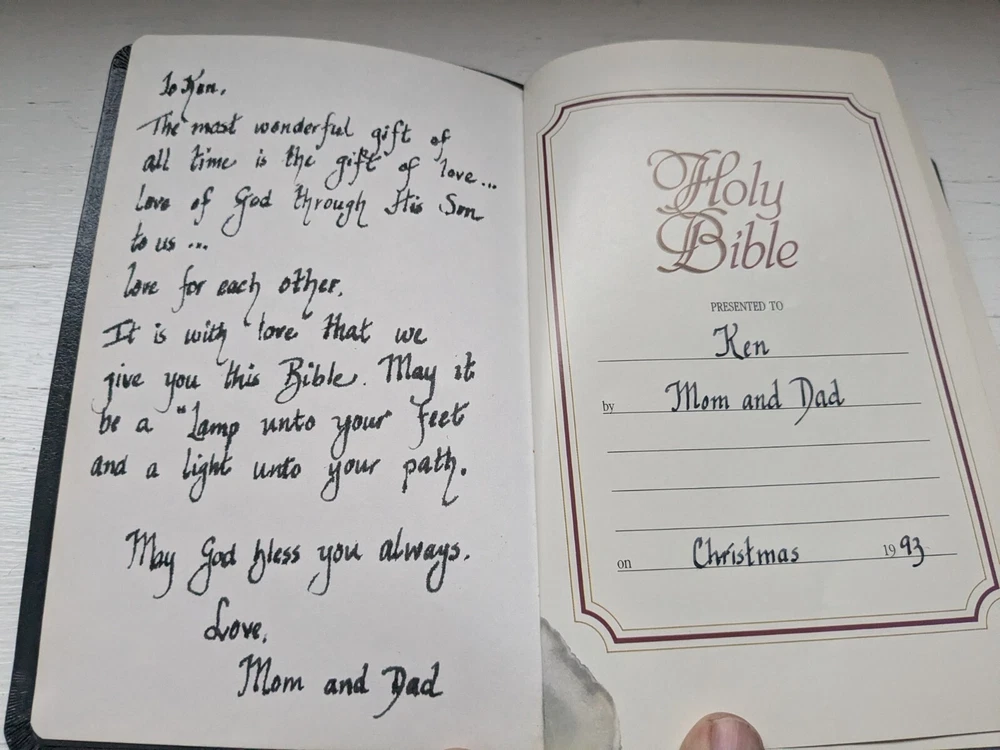 To Ken,
The most wonderful gift of
all time is the gift of love...
love of God through His Son
to us ...
love for each other.
It is with love that we
give you this Bible. May it
be a "Lamp unto your feet
and a light unto your path.
May God bless you always.
Love,
Mom and Dad
Holy
Bible
PRESENTED TO
Ken
by Mom and Dad
on Christmas 1993